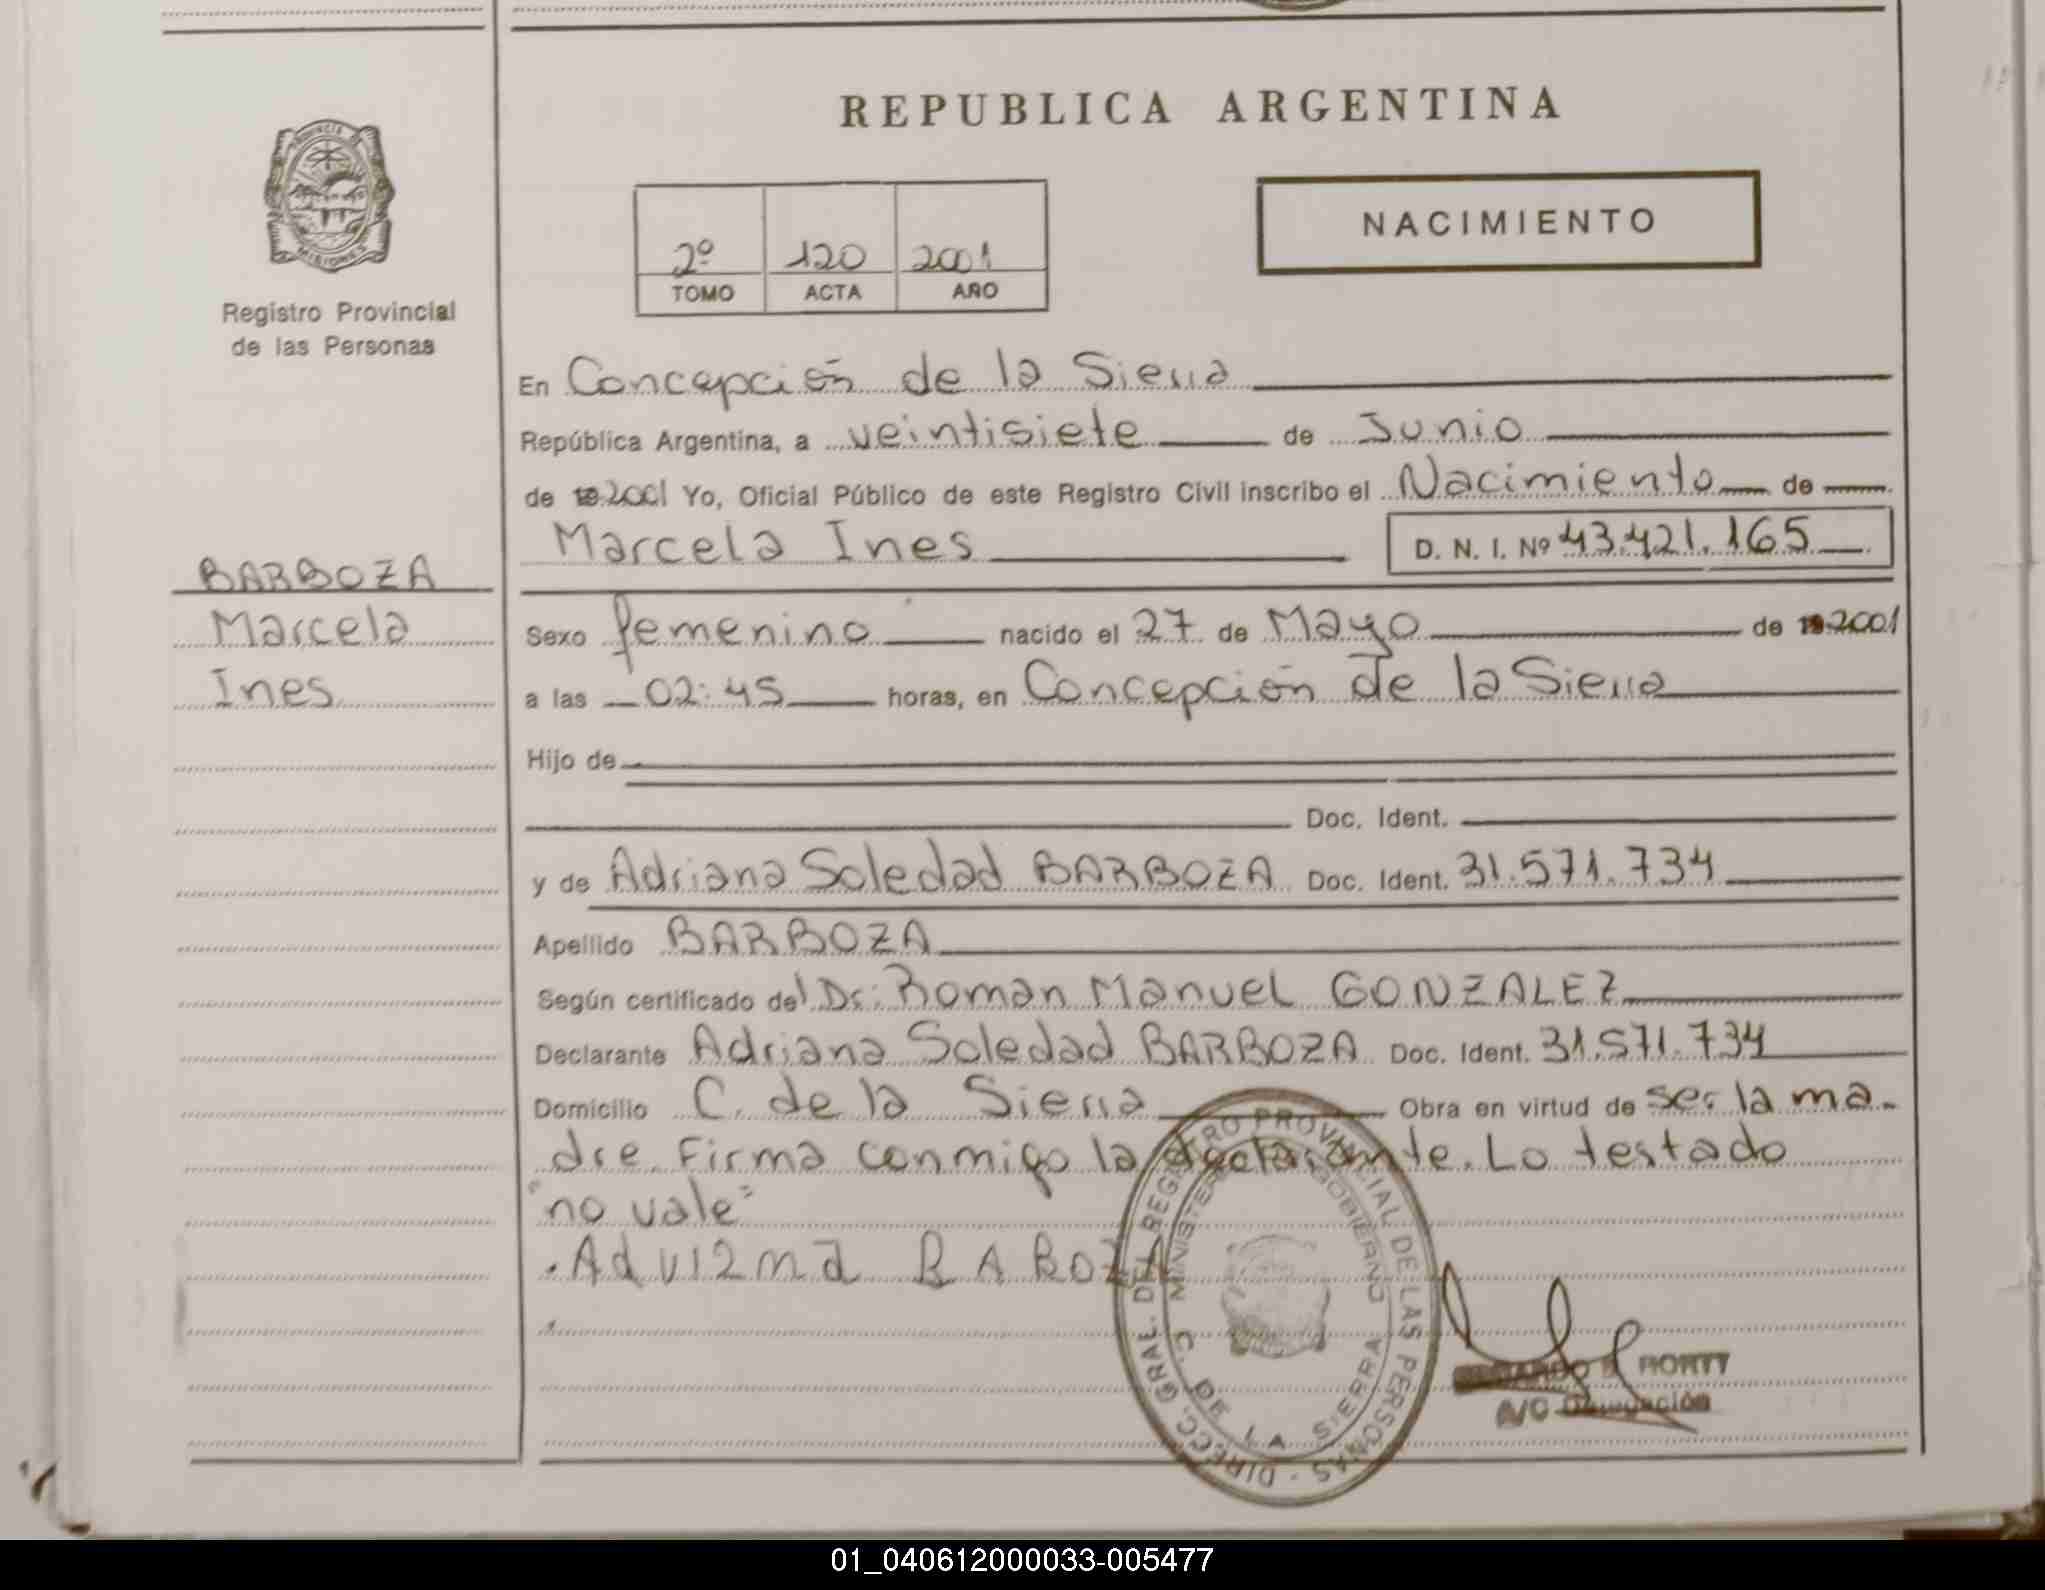 REPUBLICA ARGENTINA
PROVINCIA DE
MISIONES
Registro Provincial
de las Personas
NACIMIENTO
2º 120 2001
TOMO ACTA AÑO
En Concepción de la Sierra
República Argentina, a veintisiete de Junio
de 19 2001 Yo, Oficial Público de este Registro Civil inscribo el Nacimiento de
Marcela Ines D. N. I. Nº 43.421.165
BARBOZA
Marcela
Ines
Sexo femenino nacido el 27 de Mayo de 19 2001
a las 02:45 horas, en Concepción de la Sierra
Hijo de
Doc. Ident.
y de Adriana Soledad BARBOZA Doc. Ident. 31.571.734
Apellido BARBOZA
Según certificado del Dr. Roman Manuel GONZALEZ
Declarante Adriana Soledad BARBOZA Doc. Ident. 31.571.734
Domicilio C. de la Sierra Obra en virtud de ser la ma-
dre. Firma conmigo la declarante. Lo testado
"no vale"
DIRECC. GRAL. DEL REGISTRO PROVINCIAL DE LAS PERSONAS
GOBIERNO
C. DE LA SIERRA
A/C Delegación
01_040612000033-005477